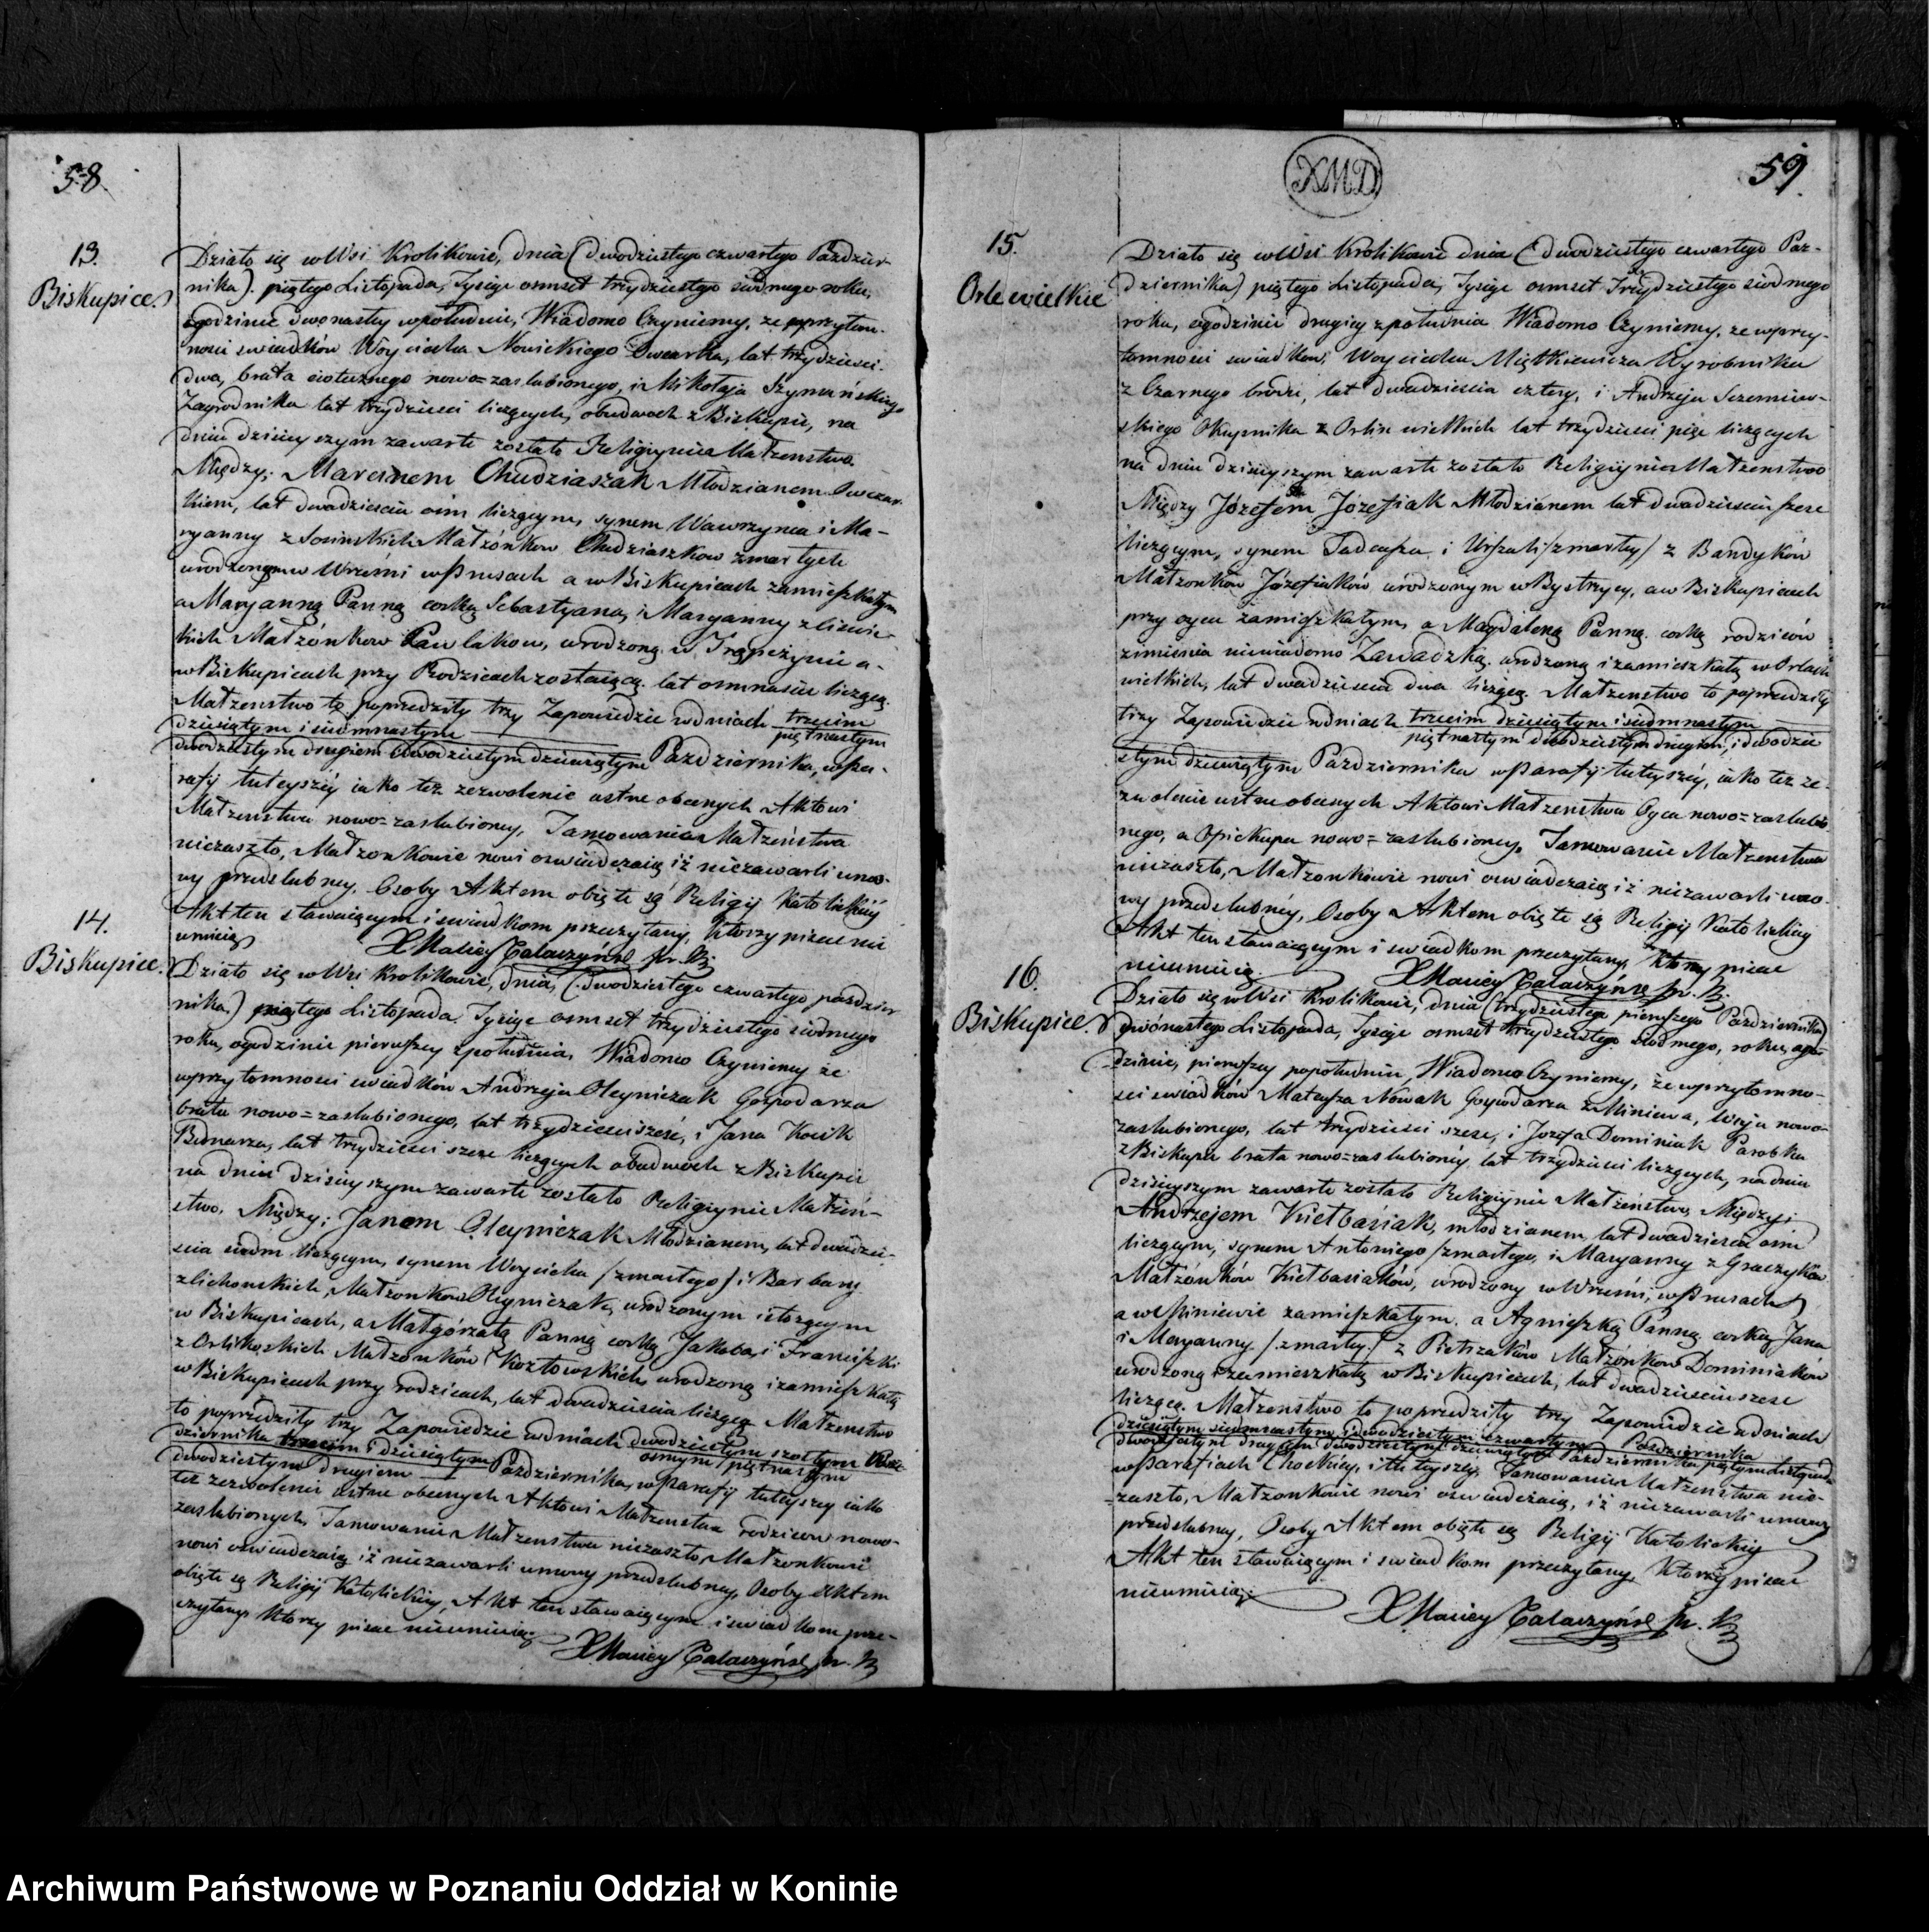 58.
13.
Biskupice.
Działo się w Wsi Krolikowie, dnia (dwudziestego czwartego Paździer-
nika). piątego Listopada, Tysiąc osmset trzydziestego siodmego roku,
ogodzinie dwonastey wpołudnie, Wiadomo Czyniemy, że wprzytom-
ności swiadków Woyciecha Nowickiego Owczarka, lat trzydzieści
dwa, brata ciotecznego nowo=zaslubionego, i Mikołaja Szymańskiego
Zagrodnika lat trzydzieści liczących, obudwoch z Biskupic, na
dniu dzisieyszym zawarte zostało Religiynie Małżenstwo
Między; Marcinem Chudziaszak Młodzianem Owczar-
kiem, lat dwadzieścia ośm liczącym, synem Wawrzynca i Ma-
ryanny z Sosinskich Małżónkow Chudziaszkow zmarłych
urodzonym w Wrześni w Prusach a w Biskupicach zamieszkałym
a Maryanną Panną corką Sebastyana, i Maryanny z
kich Małżónkow Pawlakow, urodzoną w a-
w Biskupicach przy Rodzicach zostaiącą. lat osmnaście liczącą.
Małżenstwo to poprzedziły trzy Zapowiedzie wdniach trzecim
dziesiątym i siedmnastym piętnastym
dwudziestym drugiem dwudziestym dziewiątym Pazdziernika, w Pa-
rafij tuteyszéy iako też zezwolenie ustne obecnych Aktowi
Małżenstwa nowo=zaslubioney, Tamowanie Małżeństwa
niezaszło, Małżonkowie nowi oswiadczaią iż niezawarli umo-
wy przedslubney. Osoby Aktem obięte są Religij Katolickiéy
Akt ten stawaiącym i swiadkom przeczytany, Ktorzy pisac nie
umieią X Maciey
14.
Biskupice.
Działo się w Wsi Krolikowie, dnia, (dwudziestego czwartego pazdzier
nika.) piątego Listopada. Tysiąc osmset trzydziestego siodmego
roku, ogodzinie pierwszey zpołudnia, Wiadomo Czyniemy że
wprzytomnosci swiadków Andrzeja Oleyniczak Gospodarza
brata nowo=zaslubionego, lat trzydzieści sześć, i Jana Kocik
Bednarza, lat trzydzieści szesc liczących obudwoch z Biskupic
na dniu dzisieyszym zawarte zostało Religiynie Małżeń-
stwo. Między; Janem Oleyniczak Młodzianem, lat dwadzie-
scia siedm liczącym, synem Woyciecha /zmarłego/ i Barbary
z Lichonskich, Małżonkow Oleyniczak, urodzonym i stoiącym
w Biskupicach, a Małgórzatą Panną corką Jakuba, i Franciszki
z Orlikoskich Małżónków Kozłowskich, urodzoną i zamieszkałą
w Biskupicach przy rodzicach, lat dwadzieścia liczącą Małżenstwo
to poprzedziły trzy Zapowiedzie wdniach dwudziestym szostym Paz-
dziernika trzecim i dziesiątym osmym piętnastym
dwudziestym drugiem Pazdziernika, w Parafij tuteyszey iako
też zezwolenie ustne obecnych Aktowi Małżenstwa rodziców nowo-
zaslubionych, Tamowanie Małżenstwa niezaszło, Małżonkowie
nowi oswiadczaią iż niezawarli umowy przedslubney, Osoby Aktem
obięte są Religij Katolickiey, Akt ten stawaiącym i swiadkom prze-
czytany Ktorzy pisac nieumieią.
X Maciey
XMD
59
15.
Orle wielkie
Działo się w Wsi Krolikowie dnia (dwudziestego czwartego Paz-
dziernika) piątego Listopada, Tysiąc osmset Trzydziestego siodmego
roku, ogodzinie drugiey zpołudnia Wiadomo Czyniemy, ze wprzy-
tomnosci swiadkow, Woyciecha Miętkiewicza Wyrobnika
z Czarnego brodu, lat dwadziescia cztery, i Andrzeja
skiego Okupnika z Orlin wielkich lat trzydzieści pięc liczących
na dniu dzisieyszym zawarte zostało Religiynie Małżenstwo
Między Józefem Józefiak Młodzianem lat dwadzieścia szesc
liczącym, synem Tadeusza i Urszuli /zmarłey/ z Bandyków
Małżonków Józefiaków urodzonym w Bystrzycy, a w Biskupicach
przy oycu zamieszkałym, a Magdaleną Panną. corką rodziców
zimienia niewiadomo Zawadzką. urodzoną i zamieszkałą w Orlach
wielkich, lat dwadzieścia dwa liczącą. Małżenstwo to poprzedziły
trzy Zapowiedzie wdniach trzecim dziesiątym i siedmnastym
piętnastym dwudziestym drugiem, i dwudzie
stym dziewiątym Pazdziernika w Parafij tuteyszéy, iako też ze-
zwolenie ustne obecnych Aktowi Małżenstwa Oyca nowo=zaslubio
nego, a Opiekuna nowo=zaslubioney. Tamowanie Małżenstwa
niezaszło, Małżonkowie nowi oswiadczaią iż niezawarli umo-
wy przedslubnéy, Osoby Aktem obięte są Religij Katolickiey
Akt ten stawaiącym i swiadkom przeczytany, Ktorzy pisac
nieumieią. X Maciey
16.
Biskupice.
Działo się w Wsi Krolikowie, dnia (trzydziestego pierwszego Pazdziernika)
dwónastego Listopada, Tysiąc osmset trzydziestego siodmego, roku, ogo-
dzinie, pierwszey popołudniu, Wiadomo Czyniemy, że wprzytomno-
sci swiadków Mateusza Nowak Gospodarza z Miniewa, Wuja nowo-
zaslubionego, lat trzydziesci szesc, i Jozefa Dominiak Parobka
z Biskupic brata nowo=zaslubionéy lat trzydziesci liczących, na dniu
dzisieyszym zawarte zostało Religiynie Małżeństwo, Między;
Andrzejem Kiełbasiak, młodzianem, lat dwadziescia osm
liczącym, synem Antoniego /zmarłego, i Maryanny z Graczyków
Małżónków Kiełbasiaków, urodzony w Wrześni, w Prusach
a w Miniewie zamieszkałym. a Agnieszką Panną corką Jana
i Maryanny /zmarłey/ z Pietrzaków Małżónkow Dominiaków
urodzoną i zamieszkałą w Biskupicach, lat dwadziescia szesc
liczącą. Małżenstwo to poprzedziły trzy Zapowiedzie wdniach
dziesiątym siedmnastym i dwudziestym czwartym Pazdziernika
dwudziestym drugiem dwudziestym dziewiątym Pazdziernika piątym Listopada
w Parafiach Chockiey, i tuteyszéy, Tamowanie Małżenstwa nie-
zaszło, Małżonkowie nowi oswiadczaią, iż niezawarli umowy
przedslubney, Osoby Aktem obięte są Religij Katolickiey
Akt ten stawaiącym i swiadkom przeczytany, Ktorzy pisac
nieumieią.
X Maciey
Archiwum Państwowe w Poznaniu Oddział w Koninie